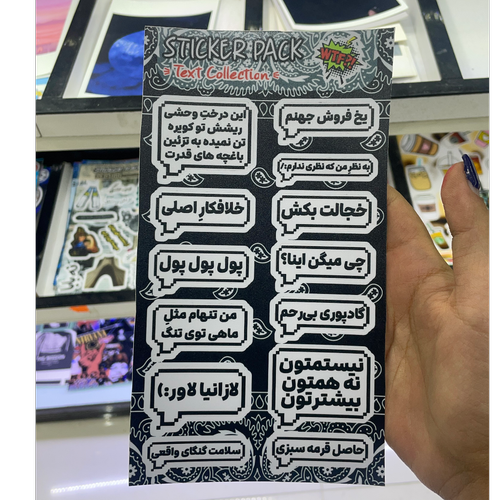 STICKER PACK
Text Collection
WTF?!
یخ فروش جهنم
به نظر من که نظری ندارم:/
خجالت بکش
چی میگن اینا؟
گادپوری بی‌رحم
نیستمتون
نه همتون
بیشترتون
حاصل قرمه سبزی
این درختِ وحشی
ریشش تو کویره
تن نمیده به تزئین
باغچه های قدرت
خلافکارِ اصلی
پول پول پول
من تنهام مثلِ
ماهی توی تنگ
لازانیا لاور:)
سلامت گنگای واقعی
NIRVANA